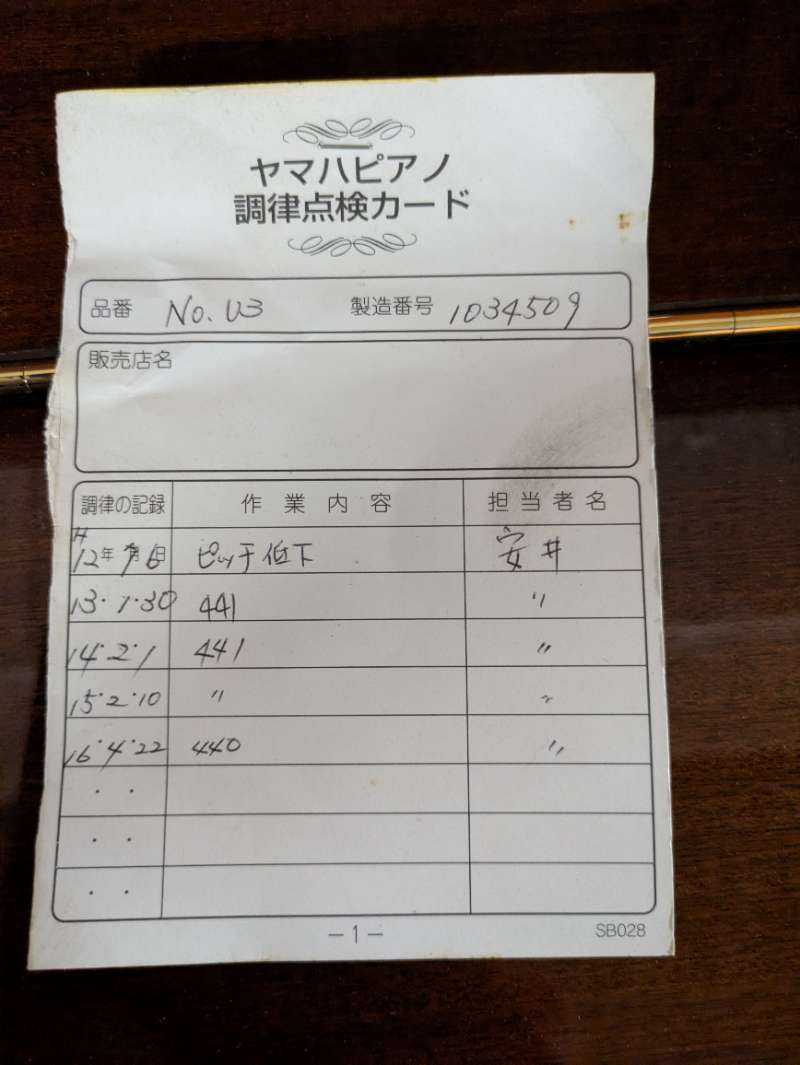 ヤマハピアノ
調律点検カード
品番 No. U3 製造番号 1034509
販売店名
調律の記録 作業内容 担当者名
H12年9月6日 ピッチ低下 安井
13・1・30 441 〃
14・2・1 441 〃
15・2・10 〃 〃
16・4・22 440 〃
・ ・
・ ・
・ ・
－1－
SB028